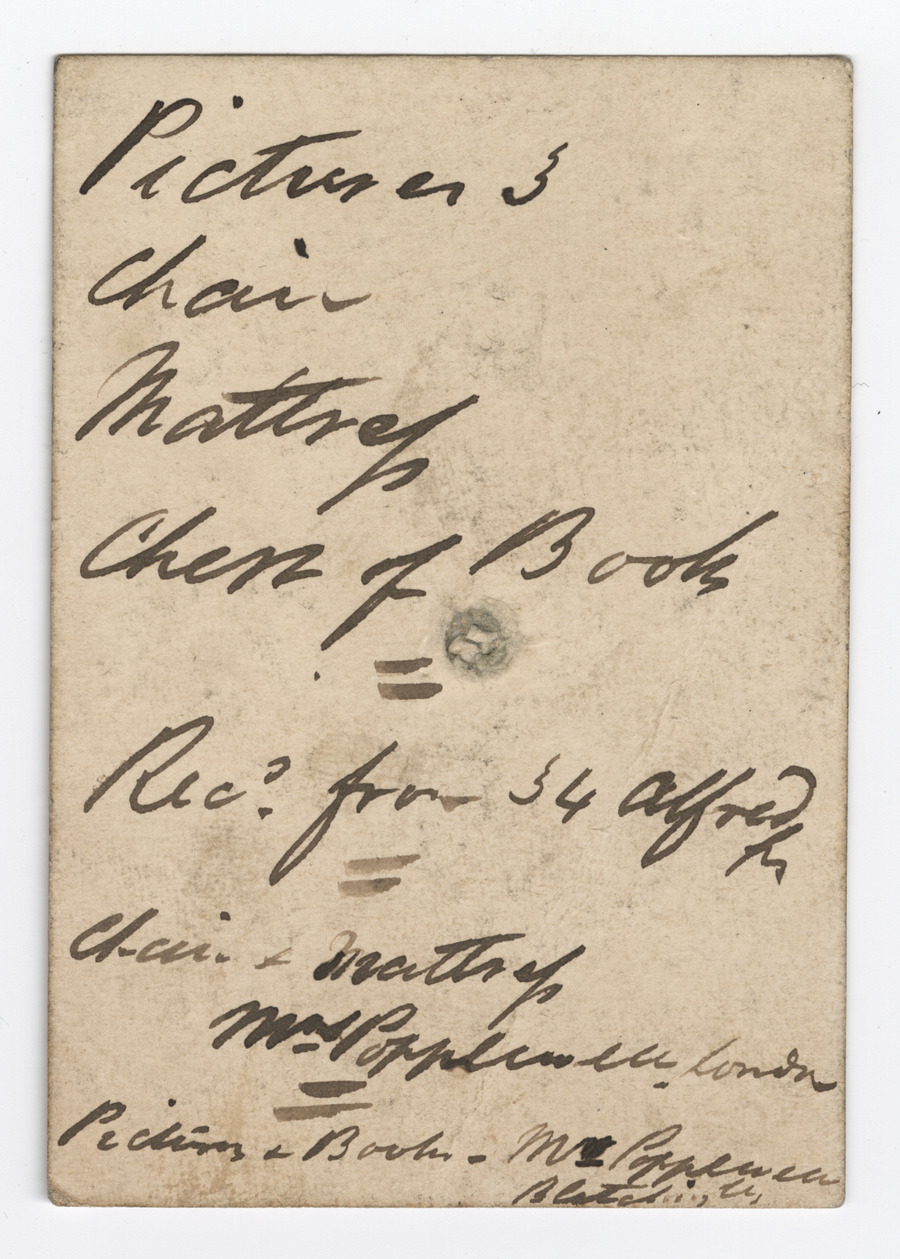 Pictures 3
Chair
Mattress
Chest of Books
=
Rec? from 34 Alfred
=
Chair & Mattress
Mrs Popplewell, London
=
Pictures & Books - Mrs Popplewell